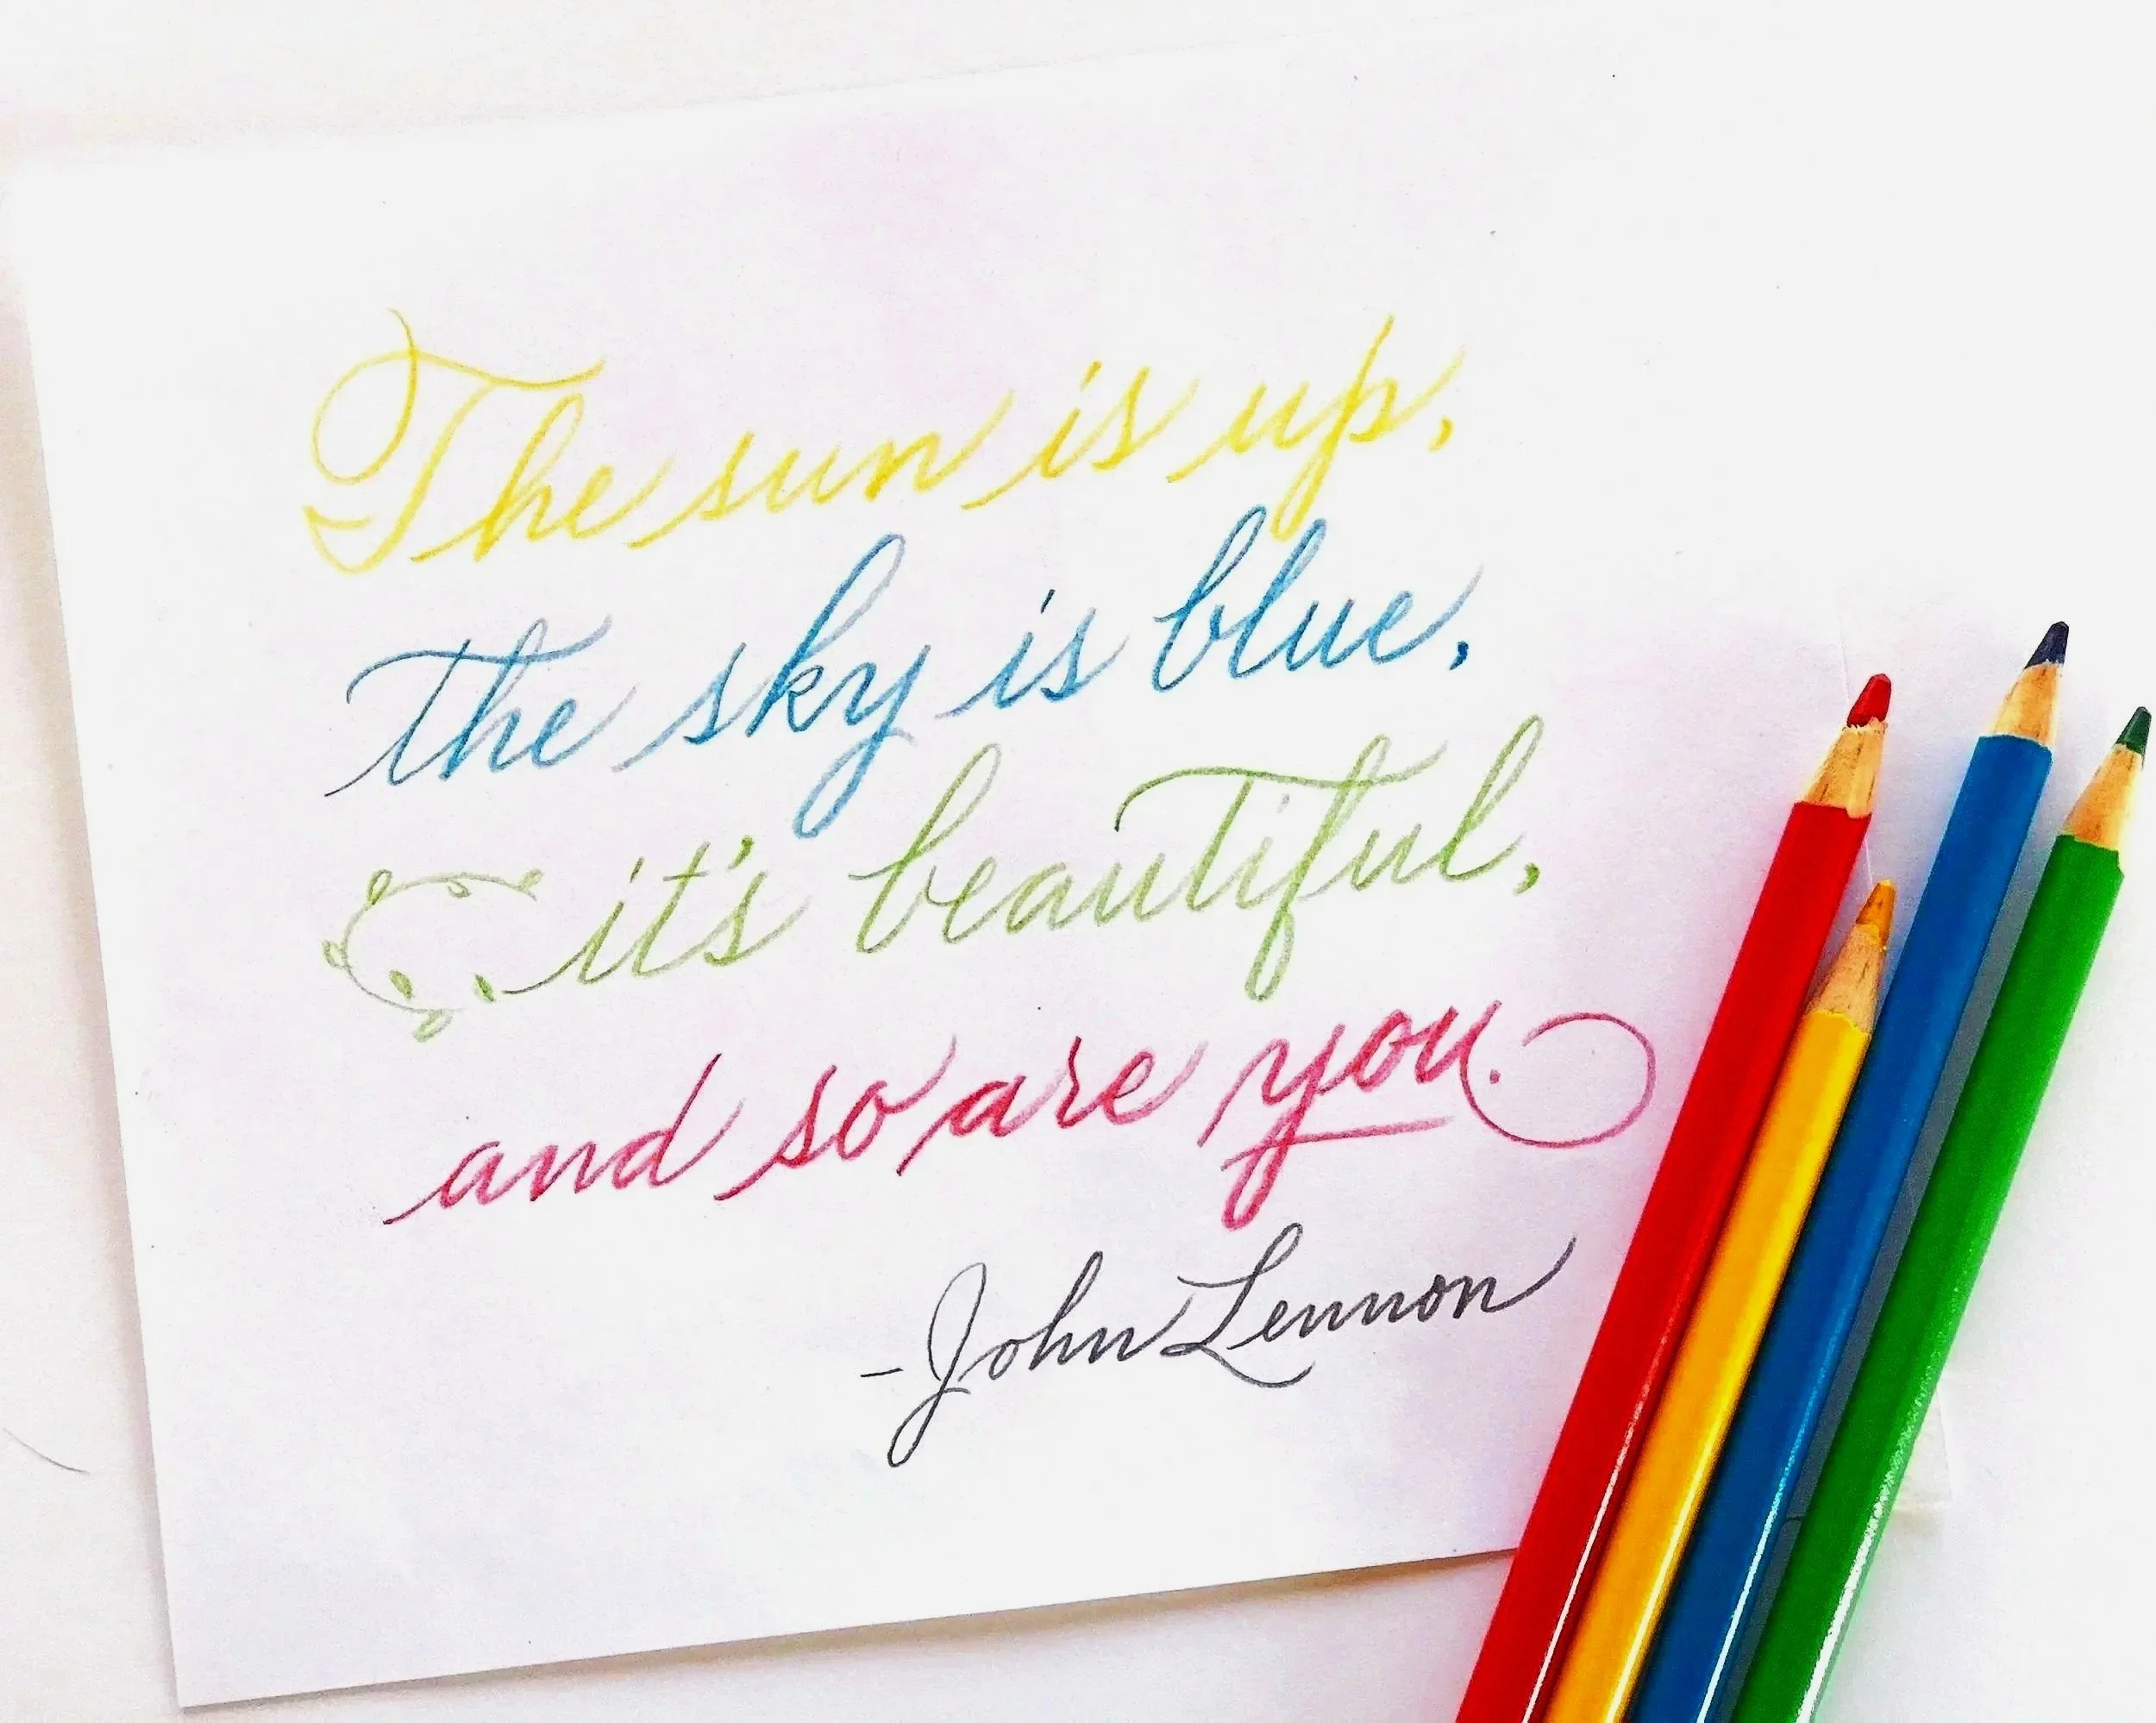 The sun is up,
the sky is blue,
it's beautiful,
and so are you.
- John Lennon